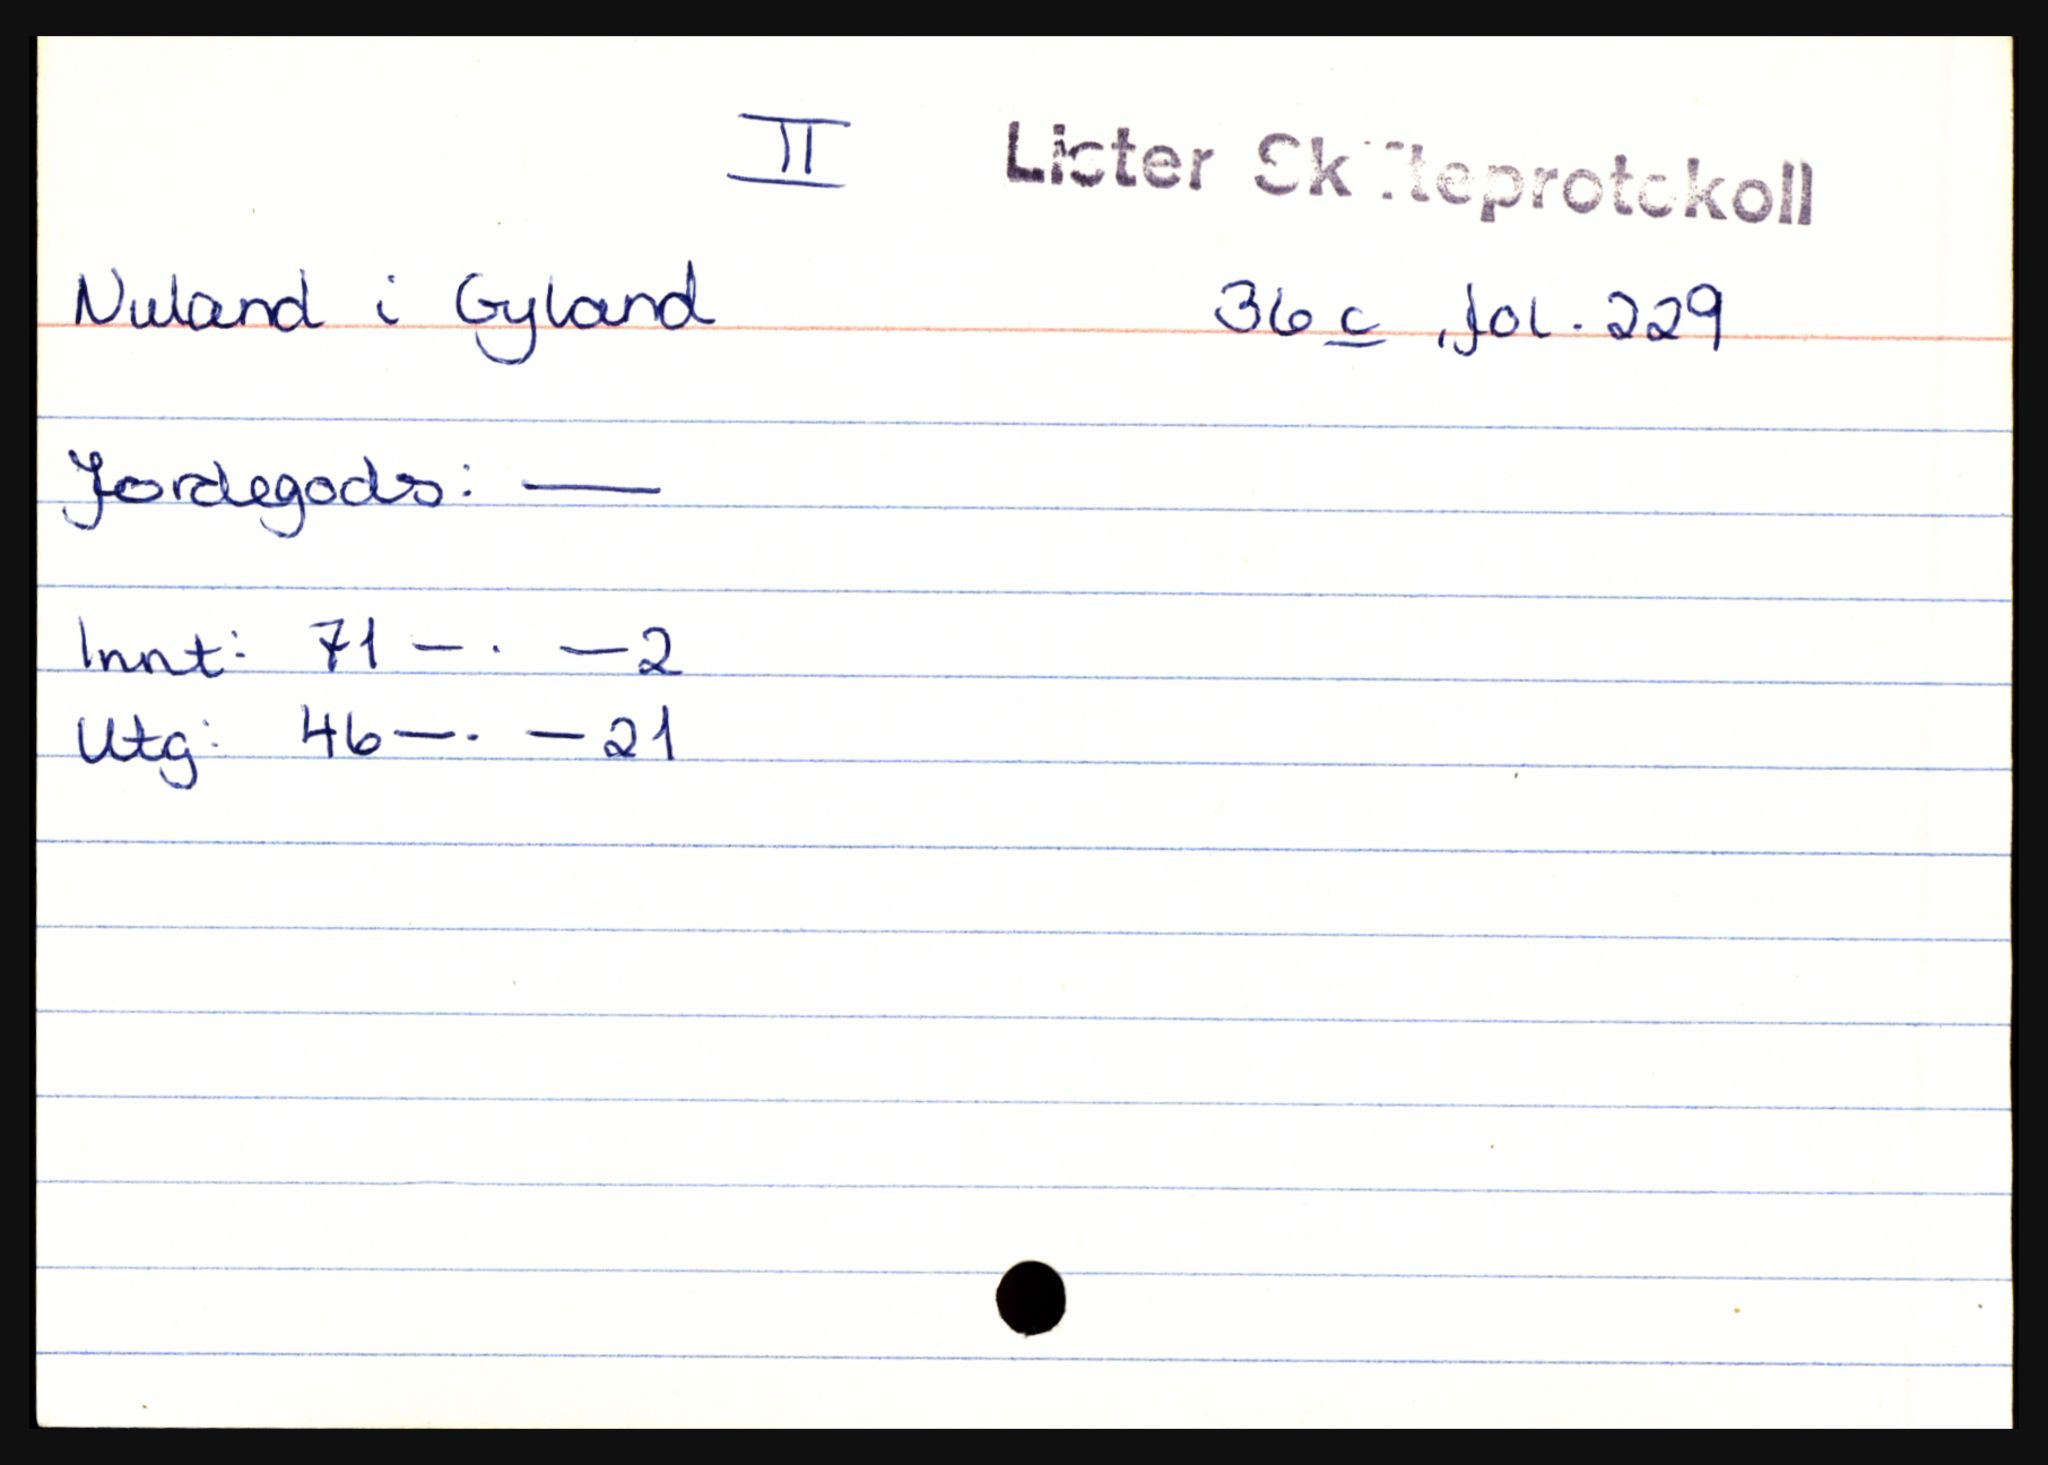 II Lister Skifteprotokoll
Nuland i Gyland 36 c, fol. 229
Jordegods: —
Innt: 71 — . — 2
Utg: 46 — . — 21